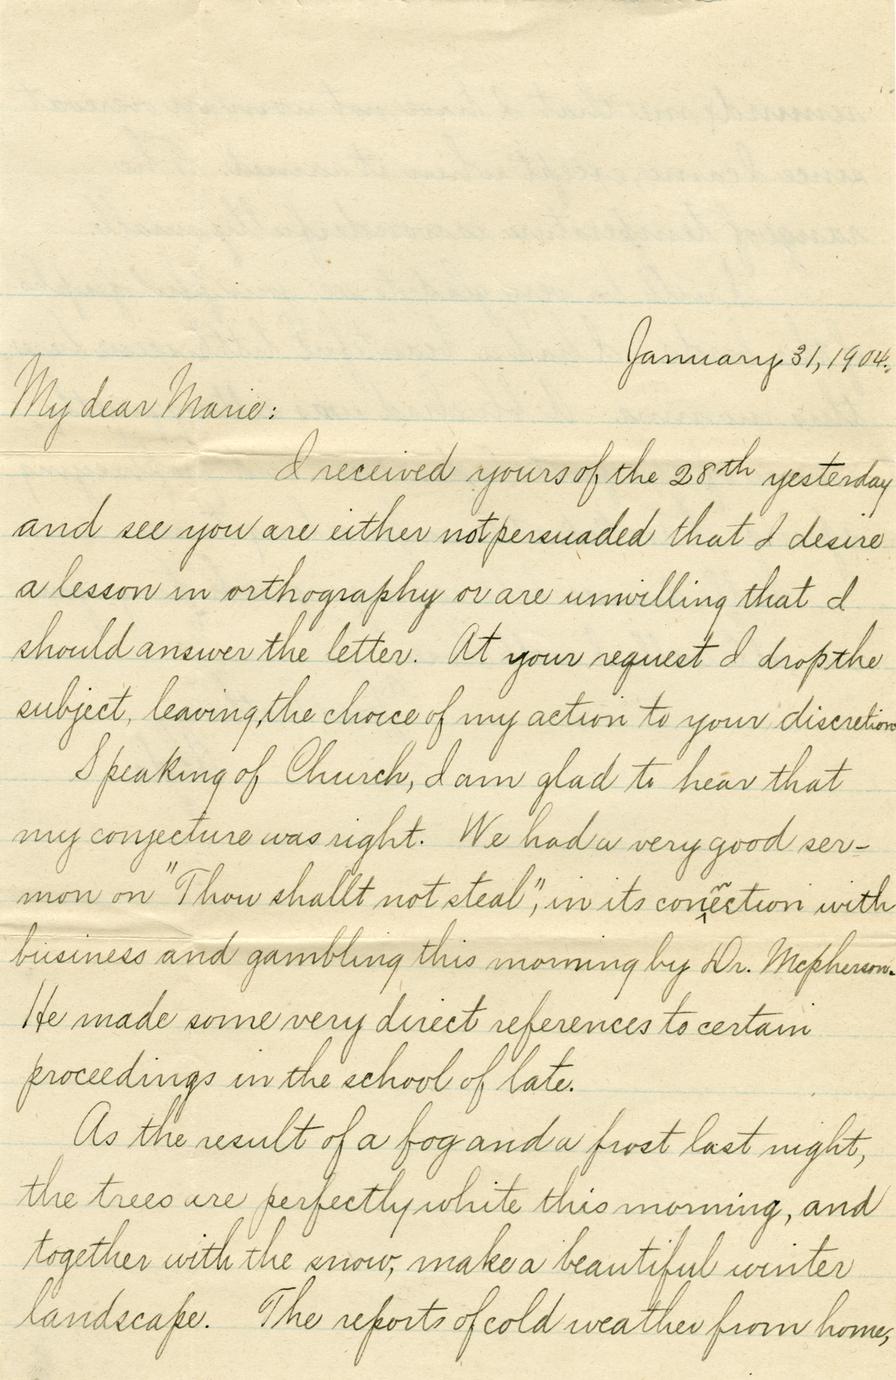 January 31, 1904.
My dear Marie:
I received yours of the 28th yesterday
and see you are either not persuaded that I desire
a lesson in orthography or are unwilling that I
should answer the letter. At your request I drop the
subject, leaving, the choice of my action to your discretion
Speaking of Church, I am glad to hear that
my conjecture was right. We had a very good ser-
mon on "Thou shallt not steal", in its connection with
business and gambling this morning by Dr. Mcpherson.
He made some very direct references to certain
proceedings in the school of late.
As the result of a fog and a frost last night,
the trees are perfectly white this morning, and
together with the snow, make a beautiful winter
landscape. The reports of cold weather from home,